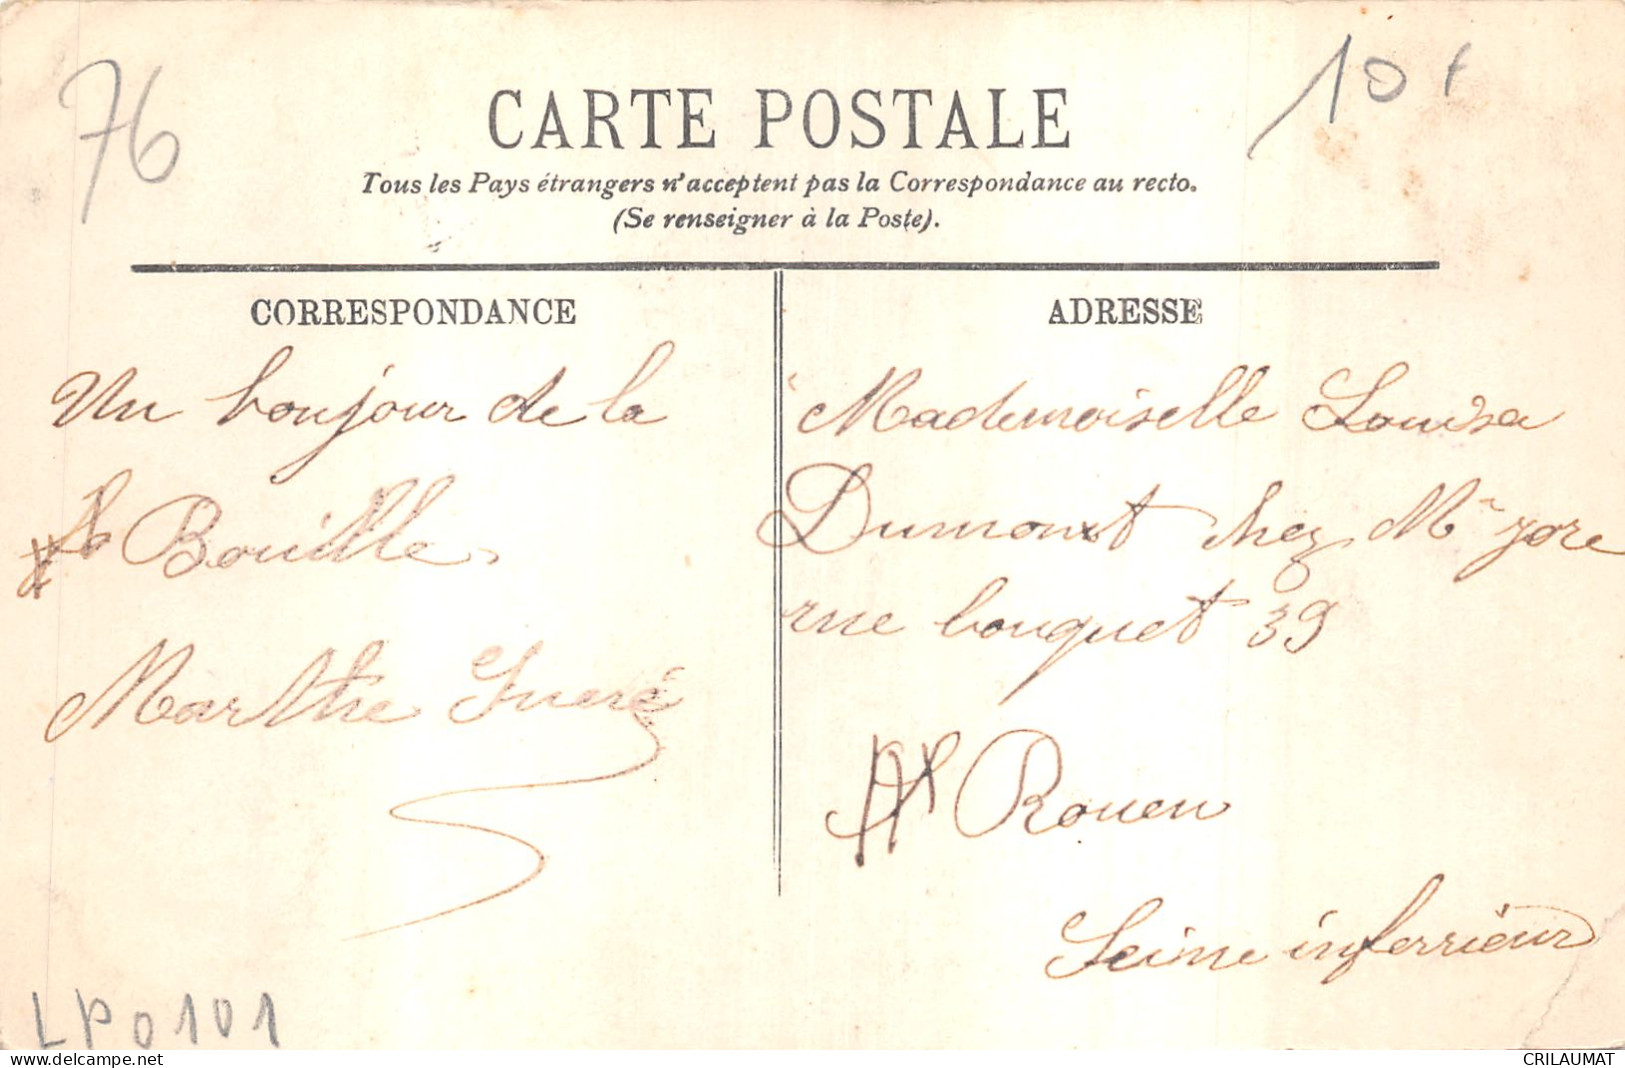 76
10
CARTE POSTALE
Tous les Pays étrangers n'acceptent pas la Correspondance au recto.
(Se renseigner à la Poste).
CORRESPONDANCE
Un bonjour de la
Bouille
Marthe
ADRESSE
Mademoiselle Louisa
Dumont chez
rue bouquet 39
Rouen
Seine inferrieur
LP0101
CRILAUMAT